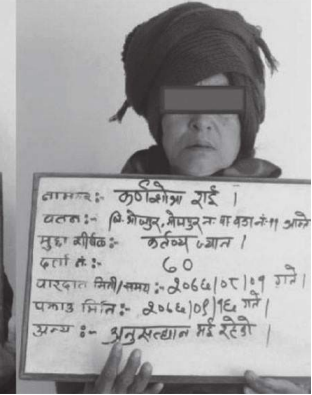 नामथर:- कर्णशोभा राई ।
वतन:- जि.भोजपुर, भोजपुर न पा वडा नं ११
मुद्दा शीर्षक:- कर्तव्य ज्यान ।
दर्ता नं:- ६०
वारदात मिती/समय:- २०७६/०८/०१ गते ।
पक्राउ मिति:- २०७६/०९/१६ गते ।
अन्य:- अनुसन्धान भई रहेको ।